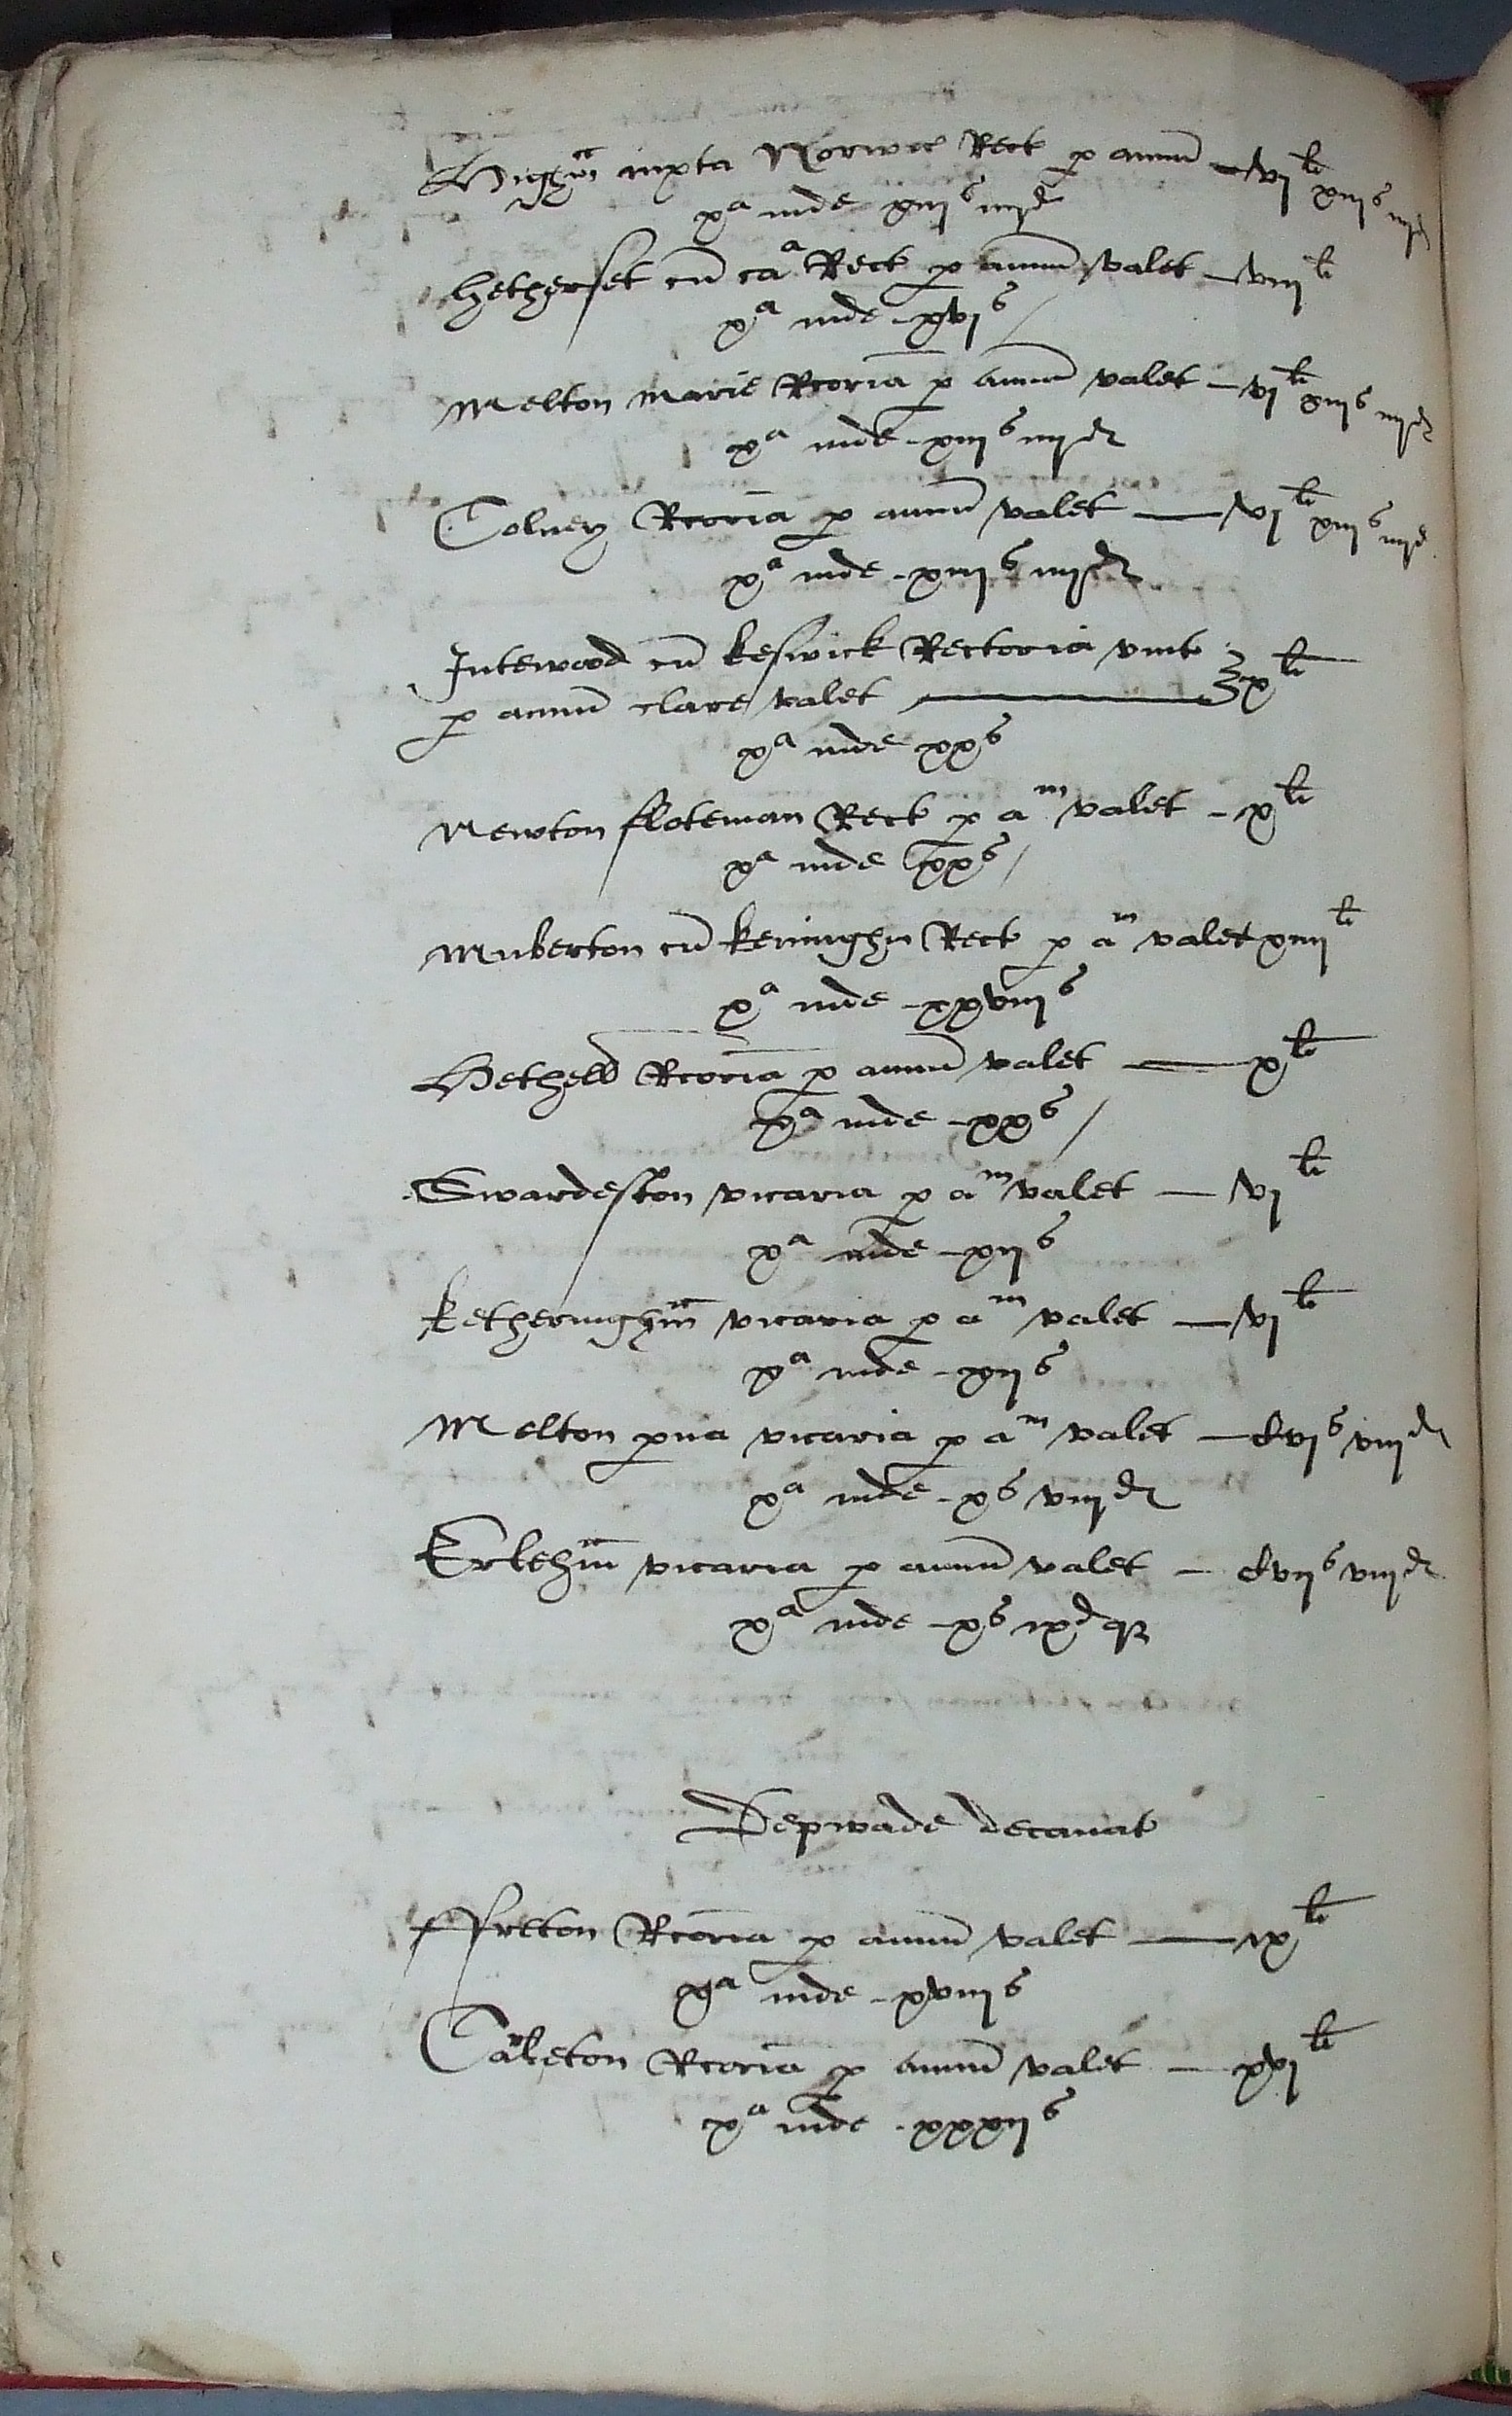 Highm iuxta Norwic Rect p annu – vj li xiij s iiij d
xa inde xiij s iiij d
hetherset cu ca a Rect p annu valet – viij li
xa inde – xvj s /
Melton marie Rcoria p annu valet – vj li xiij s iiij d
xa inde – xiij s iiij d
Colney Rcoria p annu valet — vj li xiij s iiij d
xa inde – xiij s iiij d
Intewood cu keswick Rectoria vnit
p annu clare valet — x li
xa inde xx s
Newton floteman Rect p a m valet – x li
xa inde xx s /
Mulberton cu keninghm Rect p a m valet xiiij li
xa inde – xxviij s
Hethell Rcoria p annu valet — x li
xa inde – xx s /
Swardeston vicaria p a m valet — vj li
xa inde – xij s
ketheringhm vicaria p a m valet — vj li
xa inde – xij s
Melton pua vicaria p a m valet – cvj s viij d
xa inde – x s viij d
Erlehm vicaria p annu valet – cvij s viij d
xa inde – x s ix d q
Depwade decanat
ffreton Rcoria p annu valet — ix li
xa inde – xviij s
Carleton Rcoria p annu valet — xvj li
xa inde – xxxij s